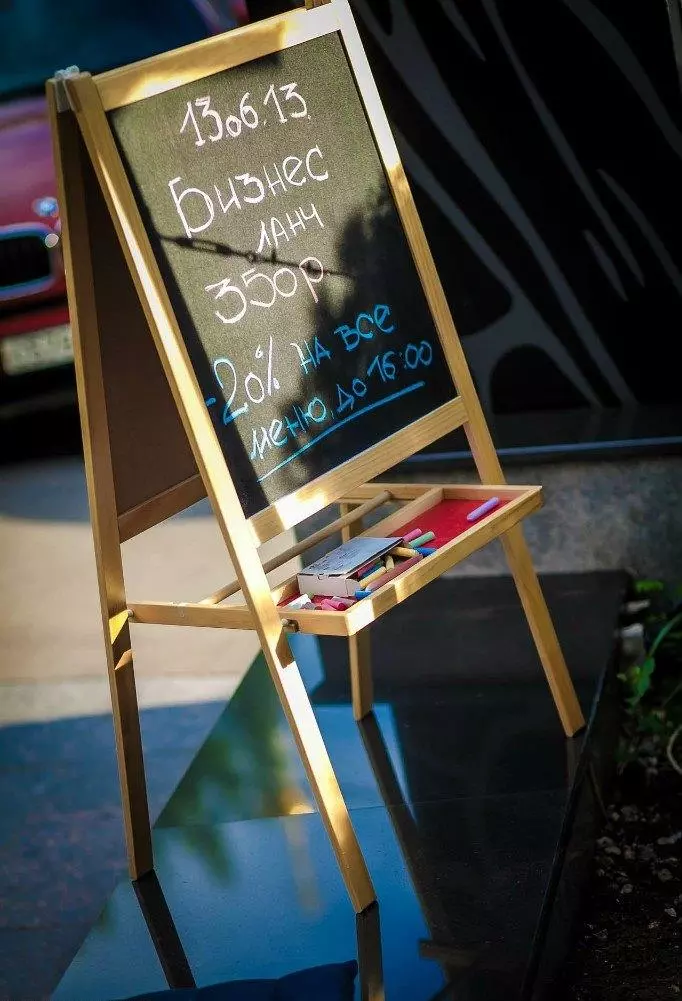 13.06.13.
Бизнес
ланч
350р
-20% на все
меню, до 16:00